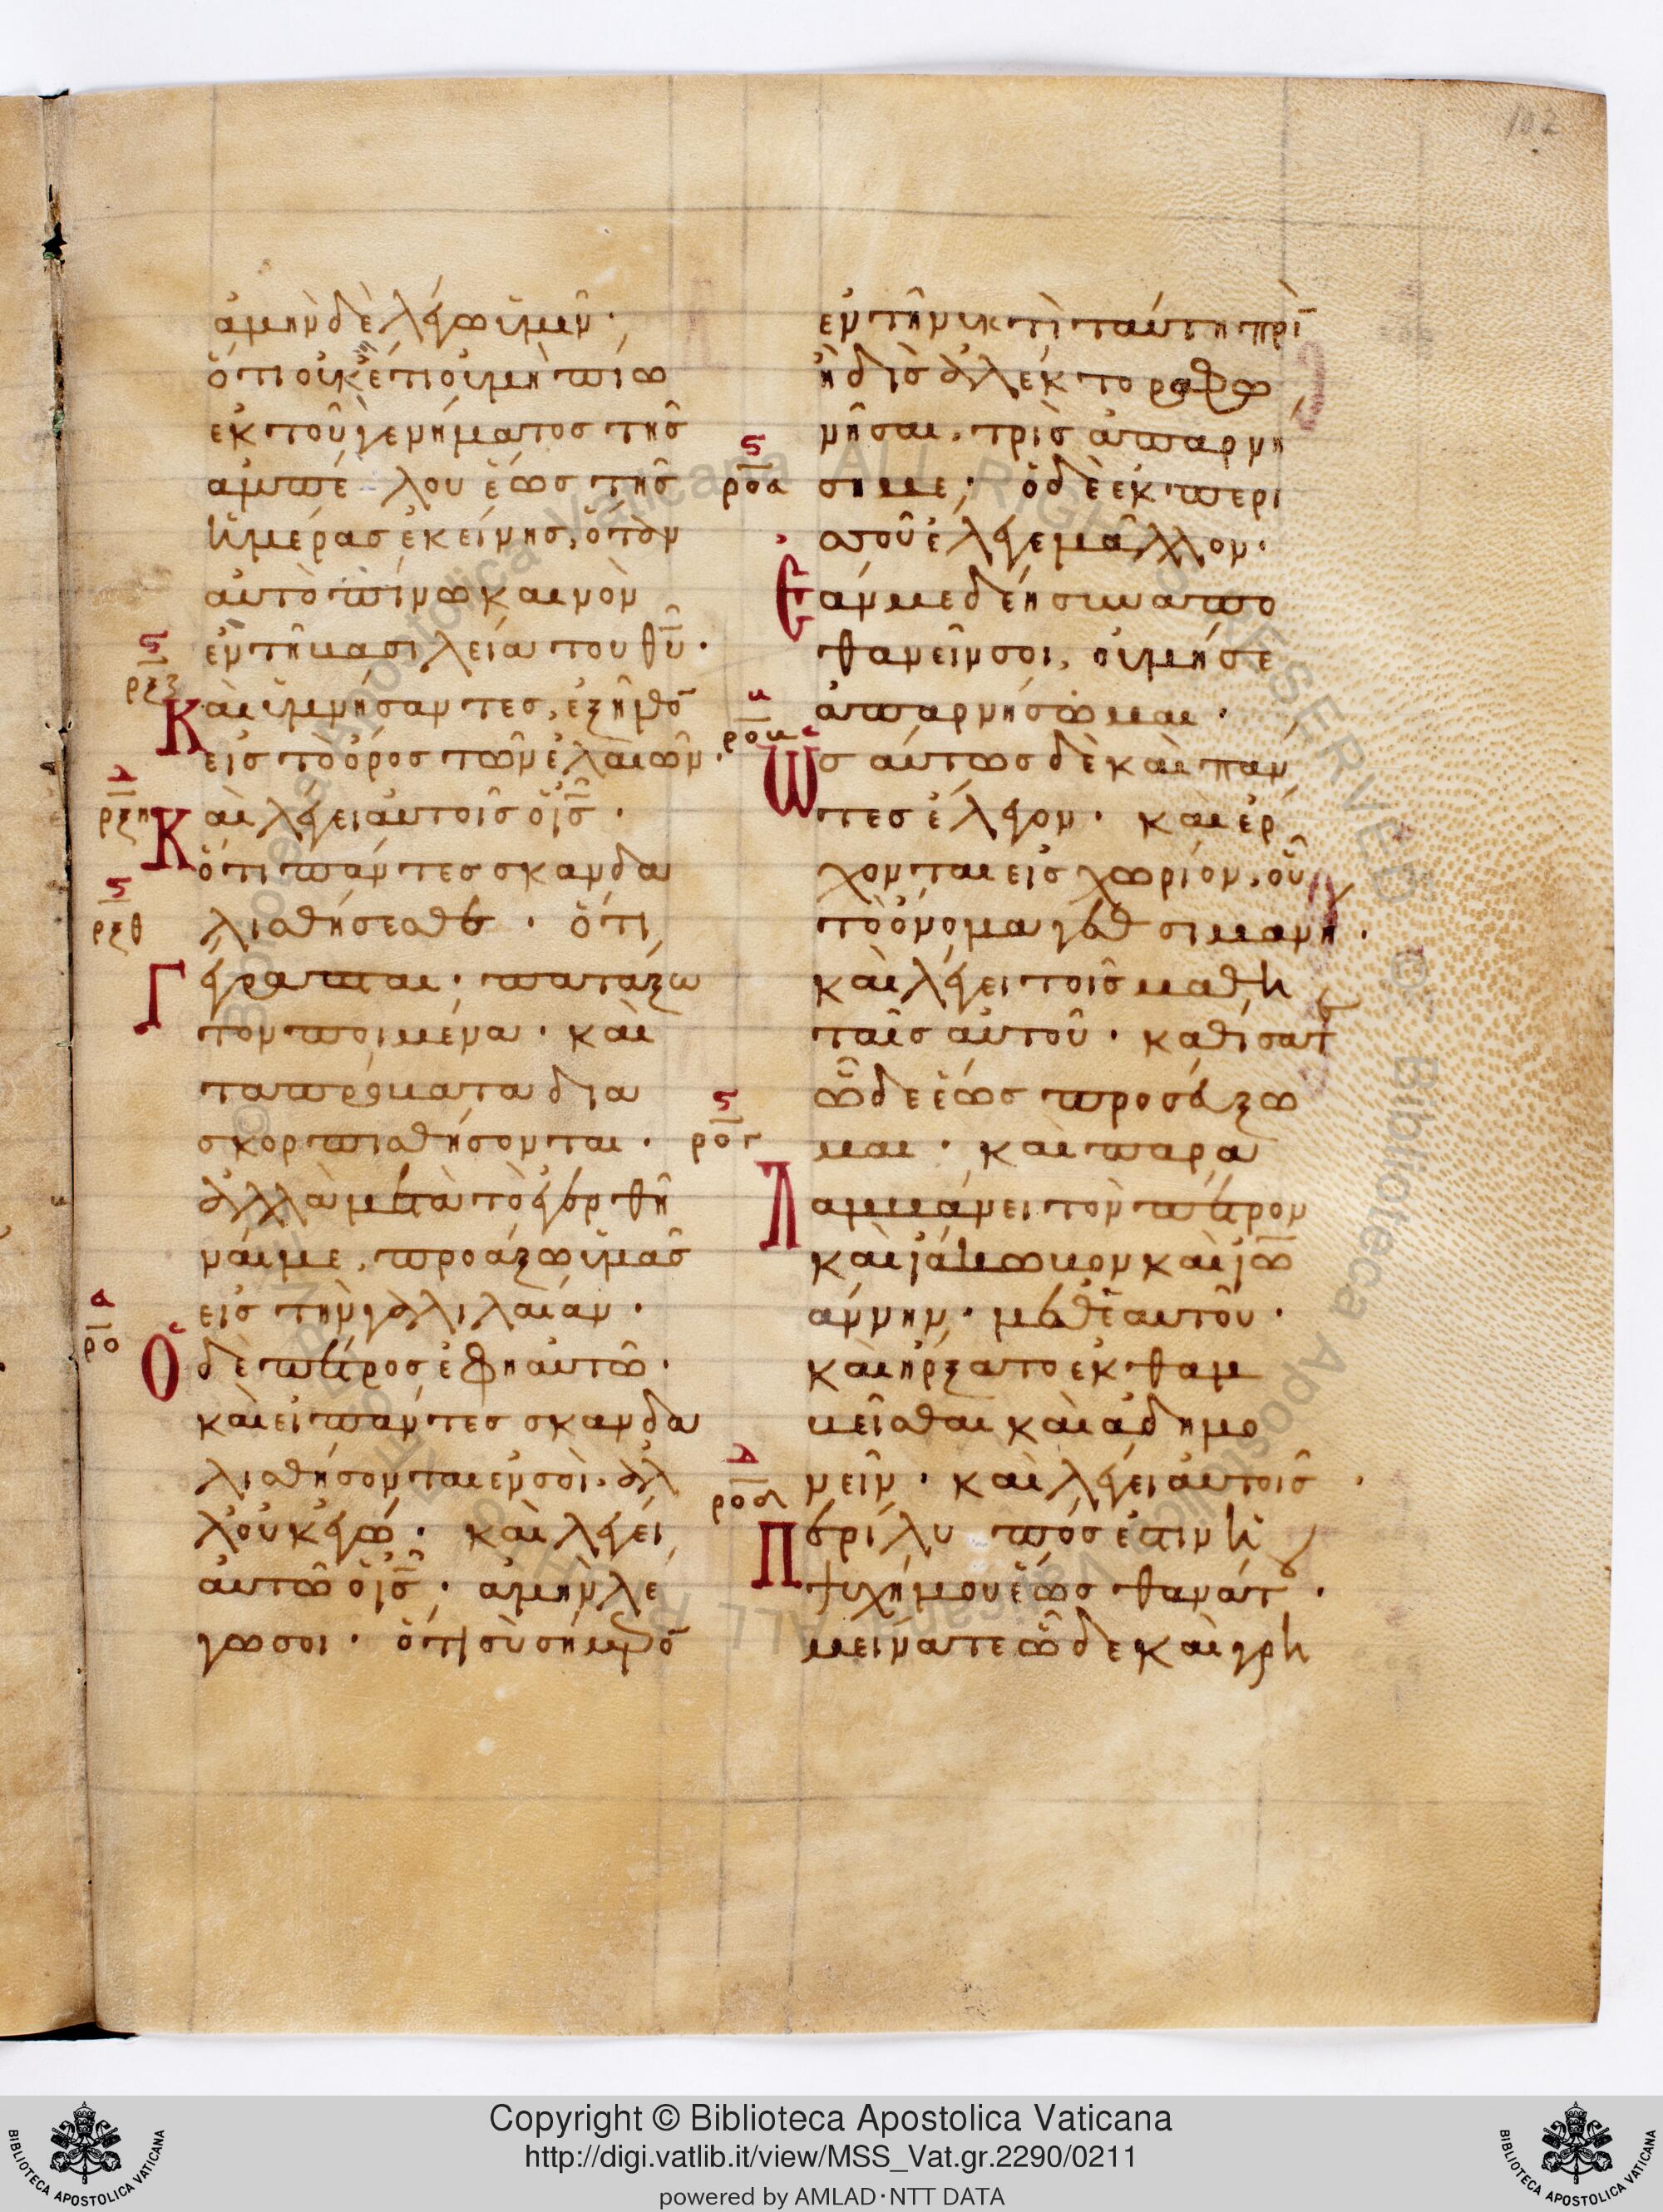 102
ἀμὴν δὲ λέγω ὑμῖν·
ὅτι οὐκέτι οὐ μὴ πίω
ἐκ τοῦ γενήματος τῆς
ἀμπέλου ἕως τῆς
ἡμέρας ἐκείνης, ὅταν
αὐτὸ πίνω καινὸν
ἐν τῆ βασιλεία του θῦ·
ϛ
ρξζ
Καὶ ὑμνήσαντες, ἐξῆλθο̅
εἰς τὸ ὄρος τῶν ἐλαιῶν·
δ
ρξη
Καὶ λέγει αὐτοῖς ὁ ἰς̅·
ὅτι πάντες σκανδα
ϛ
ρξθ
λισθήσεσθε· ὅτι
Γέγραπται· πατάξω
τον ποιμένα· καὶ
τα πρόβατα δια
σκορπισθήσονται·
ἀλλὰ μετὰ τὸ ἐγερθῆ
ναί με, προάξω ὑμᾶς
εἰς τὴν γαλιλαίαν·
α
ρο
Ὁ δὲ πέτρος ἔφη αὐτῶ·
καὶ εἰ πάντες σκανδα
λισθήσονται ἐν σοὶ, ἀλ
λ οὐκ ἐγώ· καὶ λέγει
αὐτῶ ὁ ἰς̅· ἀμὴν λέ
γω σοι· ὅτι σὺ σήμερο̅
ἐν τῆ νυκτὶ ταύτη πρὶ̅
ἢ δὶς ἀλέκτορα φω
νῆσαι, τρὶς ἀπαρνή
ϛ
ροα
ση με· ὁ δὲ ἐκ περι
σοῦ ἔλεγε μᾶλλον·
Ἐάν με δέη συναπο
θανεῖν σοι, οὐ μή σε
ἀπαρνήσωμαι·
β
ροβ
Ὡσαύτως δὲ καὶ πάν
τες ἔλεγον· καὶ ἔρ
χονται εἰς χωρίον, οὗ
τὸ ὄνομα γεθσιμανῆ·
καὶ λέγει τοῖς μαθη
ταῖς αὐτοῦ· καθίσατε
ὧδε ἕως προσεύξω
ϛ
ρογ
μαι· καὶ παρα
λαμβάνει τὸν πέτρον
καὶ ἰάκωβον καὶ ἰω
άννην· μεθ ἑαυτοῦ·
καὶ ἤρξατο ἐκθαμ
βεῖσθαι καὶ ἀδημο
νεῖν· καὶ λέγει αὐτοῖς·
δ
ροδ
Περίλυπός ἐστιν ἡ
ψυχή μου ἕως θανάτ·
μείνατε ὧδε καὶ γρη
Copyright © Biblioteca Apostolica Vaticana
http://digi.vatlib.it/view/MSS_Vat.gr.2290/0211
powered by AMLAD·NTT DATA
BIBLIOTECA APOSTOLICA VATICANA
BIBLIOTECA APOSTOLICA VATICANA